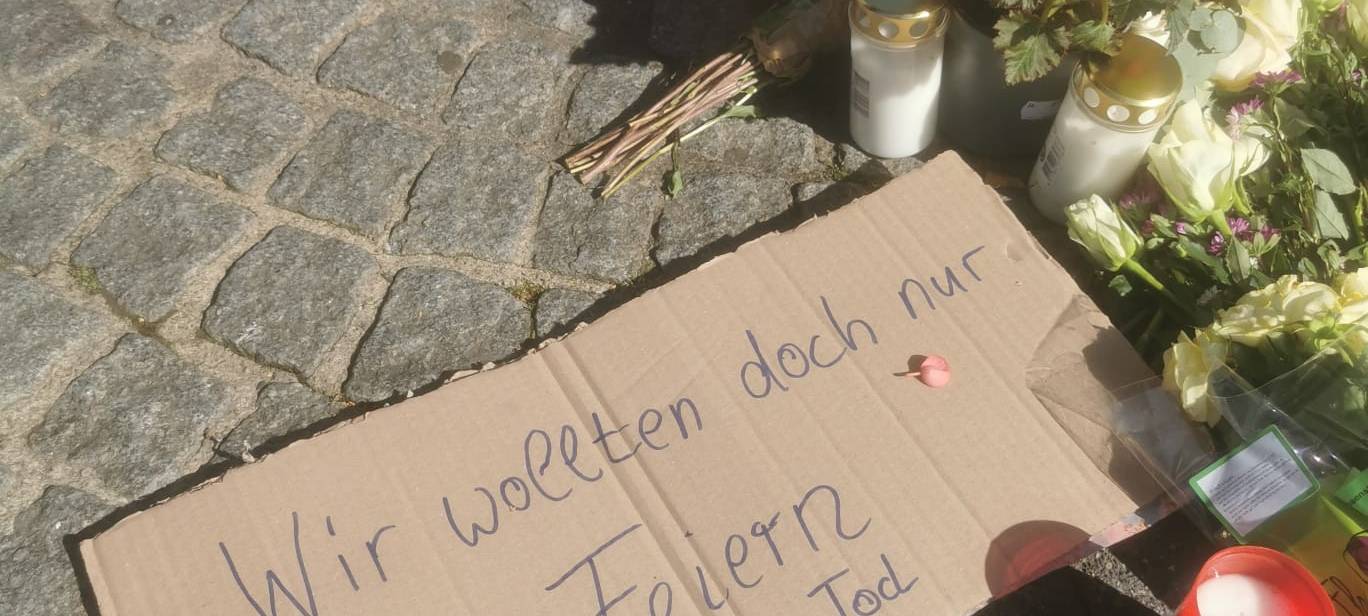 Wir wollten doch nur
Feiern
Tod